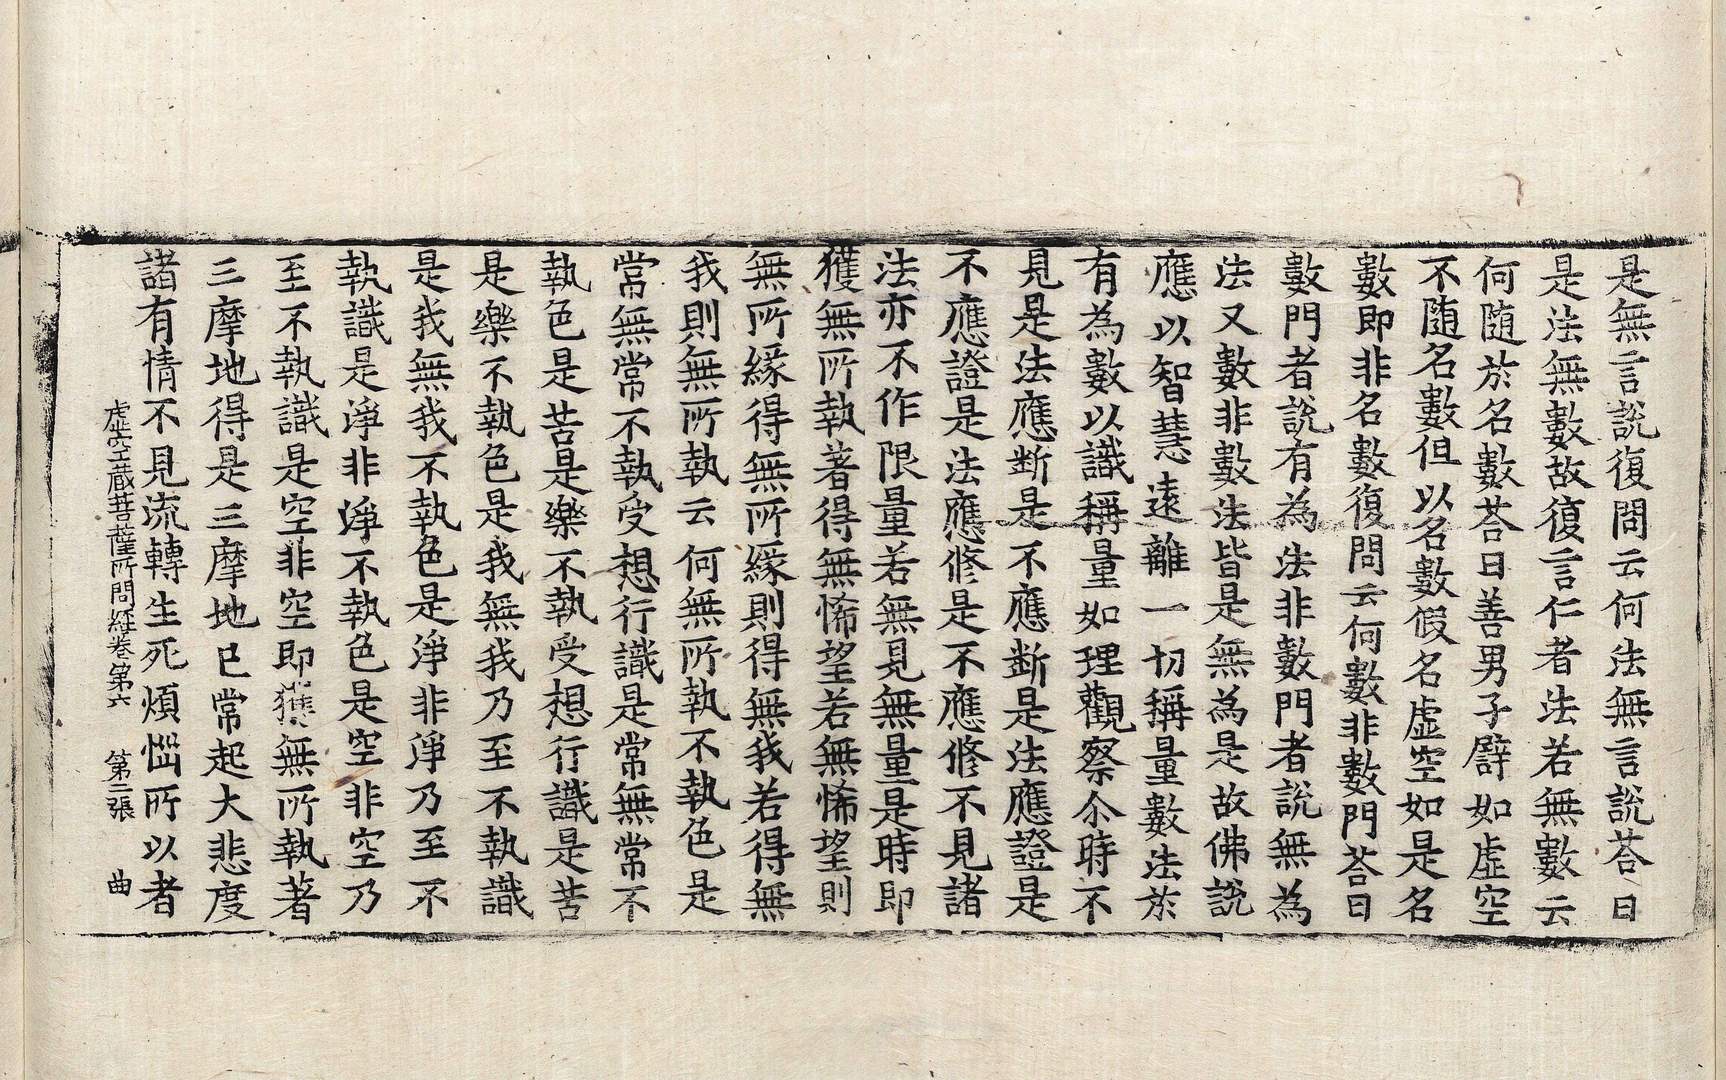 是無言說復問云何法無言說荅曰
是法無數故復言仁者法若無數云
何随於名數荅曰善男子譬如虛空
不随名數但以名數假名虛空如是名
數即非名數復問云何數非數門荅曰
數門者說有為法非數門者說無為
法又數非數法皆是無為是故佛說
應以智慧遠離一切稱量數法於
有為數以識稱量如理觀察尒時不
見是法應断是不應断是法應證是
不應證是法應修是不應修不見諸
法亦不作限量若無見無量是時即
獲無所執著得無悕望若無悕望則
無所緣得無所緣則得無我若得無
我則無所執云何無所執不執色是
常無常不執受想行識是常無常不
執色是苦是樂不執受想行識是苦
是樂不執色是我無我乃至不執識
是我無我不執色是淨非淨乃至不
執識是淨非淨不執色是空非空乃
至不執識是空非空即獲無所執著
三摩地得是三摩地已常起大悲度
諸有情不見流轉生死煩惱所以者
虛空蔵菩薩所問經卷第六 第二張 曲